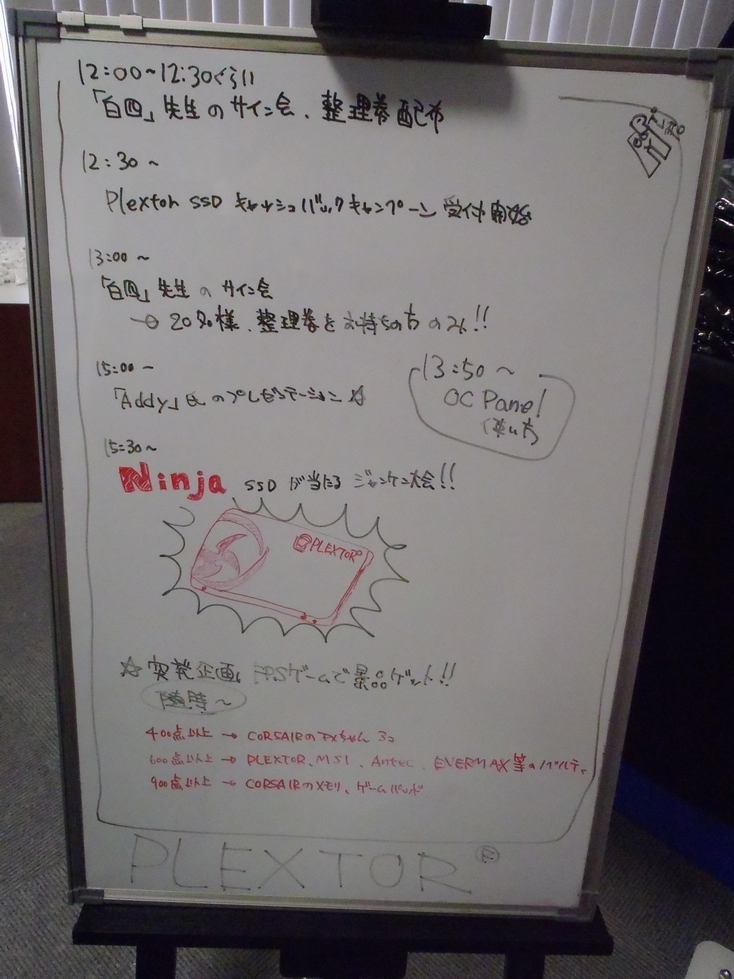 12:00~12:30ぐらい
「白四」先生のサイン会、整理券配布
12:30~
Plextor SSD キャッシュバックキャンペーン 受付開始
13:00~
「白四」先生のサイン会
→ 20名様、整理券をお持ちの方のみ!!
15:00~
「Addy」氏のプレゼンテーション☆
13:50~
OC Panel
(使い方)
15:30~
Ninja SSDが当たる ジャンケン大会!!
PLEXTOR
☆ 突発企画 FPSゲームで景品ゲット!!
随時~
400点以上 →  CORSAIRの
600点以上 → PLEXTOR、MSI、Antec、ENERMAX等のノベルティ
900点以上 → CORSAIRのメモリ、ゲームパッド
PLEXTOR®